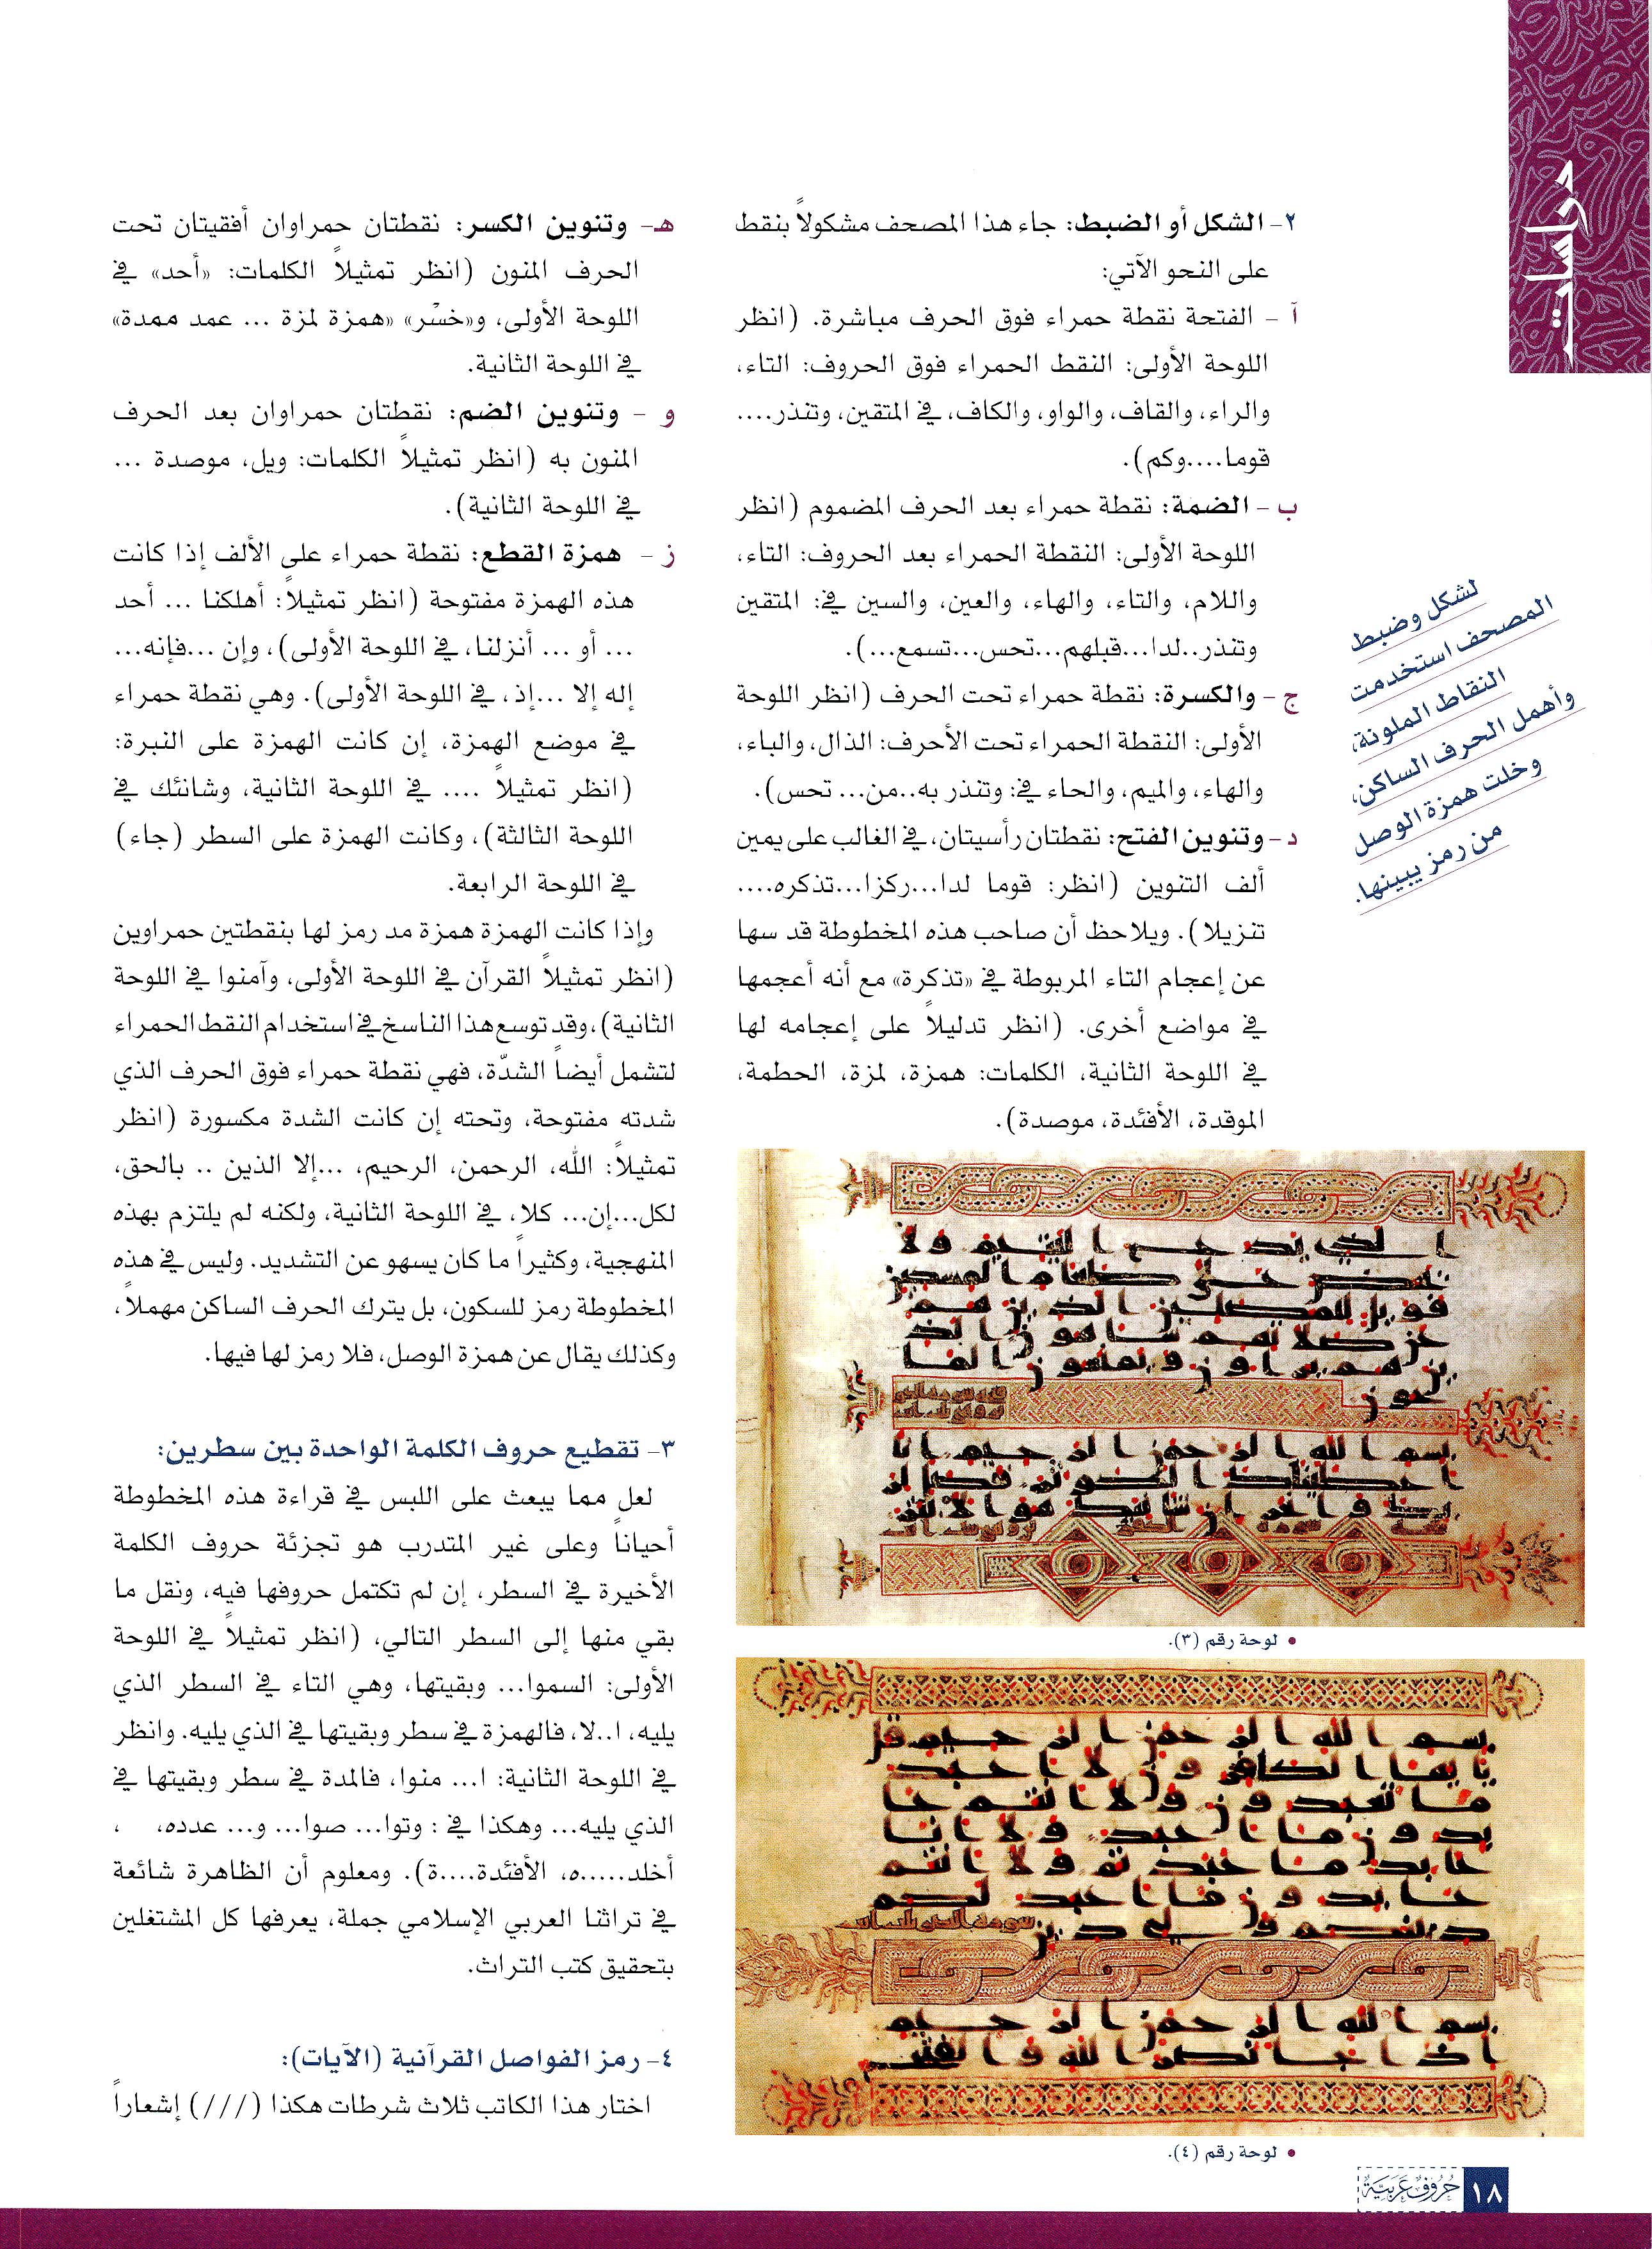 دراسات
٢- الشكل أو الضبط: جاء هذا المصحف مشكولاً بنقط
على النحو الآتي:
آ - الفتحة نقطة حمراء فوق الحرف مباشرة. (انظر
اللوحة الأولى: النقط الحمراء فوق الحروف: التاء،
والراء، والقاف، والواو، والكاف، في المتقين، وتنذر....
قوما....وكم).
ب - الضمة: نقطة حمراء بعد الحرف المضموم (انظر
اللوحة الأولى: النقطة الحمراء بعد الحروف: التاء،
واللام، والتاء، والهاء، والعين، والسين في: المتقين
وتنذر..لدا...قبلهم...تحس...تسمع...).
ج - والكسرة: نقطة حمراء تحت الحرف (انظر اللوحة
الأولى: النقطة الحمراء تحت الأحرف: الذال، والباء،
والهاء، والميم، والحاء في: وتنذر به..من... تحس).
د - وتنوين الفتح: نقطتان رأسيتان، في الغالب على يمين
ألف التنوين (انظر: قوما لدا...ركزا...تذكره....
تنزيلا). ويلاحظ أن صاحب هذه المخطوطة قد سها
عن إعجام التاء المربوطة في «تذكرة» مع أنه أعجمها
في مواضع أخرى. (انظر تدليلاً على إعجامه لها
في اللوحة الثانية، الكلمات: همزة، لمزة، الحطمة،
الموقدة، الأفئدة، موصدة).
لشكل وضبط
المصحف استخدمت
النقاط الملونة،
وأهمل الحرف الساكن،
وخلت همزة الوصل
من رمز يبينها.
• لوحة رقم (٣).
• لوحة رقم (٤).
هـ- وتنوين الكسر: نقطتان حمراوان أفقيتان تحت
الحرف المنون (انظر تمثيلاً الكلمات: «أحد» في
اللوحة الأولى، و«خسْر» «همزة لمزة ... عمد ممددة»
في اللوحة الثانية.
و - وتنوين الضم: نقطتان حمراوان بعد الحرف
المنون به (انظر تمثيلاً الكلمات: ويل، موصدة ...
في اللوحة الثانية).
ز - همزة القطع: نقطة حمراء على الألف إذا كانت
هذه الهمزة مفتوحة (انظر تمثيلاً: أهلكنا ... أحد
... أو ... أنزلنا، في اللوحة الأولى)، وإن ...فإنه...
إله إلا ...إذ، في اللوحة الأولى). وهي نقطة حمراء
في موضع الهمزة، إن كانت الهمزة على النبرة:
(انظر تمثيلاً .... في اللوحة الثانية، وشانئك في
اللوحة الثالثة)، وكانت الهمزة على السطر (جاء)
في اللوحة الرابعة.
وإذا كانت الهمزة همزة مد رمز لها بنقطتين حمراوين
(انظر تمثيلاً القرآن في اللوحة الأولى، وآمنوا في اللوحة
الثانية)، وقد توسع هذا الناسخ في استخدام النقط الحمراء
لتشمل أيضاً الشدّة، فهي نقطة حمراء فوق الحرف الذي
شدته مفتوحة، وتحته إن كانت الشدة مكسورة (انظر
تمثيلاً: الله، الرحمن، الرحيم، ...إلا الذين .. بالحق،
لكل...إن... كلا، في اللوحة الثانية، ولكنه لم يلتزم بهذه
المنهجية، وكثيراً ما كان يسهو عن التشديد. وليس في هذه
المخطوطة رمز للسكون، بل يترك الحرف الساكن مهملاً،
وكذلك يقال عن همزة الوصل، فلا رمز لها فيها.
٣- تقطيع حروف الكلمة الواحدة بين سطرين:
لعل مما يبعث على اللبس في قراءة هذه المخطوطة
أحياناً وعلى غير المتدرب هو تجزئة حروف الكلمة
الأخيرة في السطر، إن لم تكتمل حروفها فيه، ونقل ما
بقي منها إلى السطر التالي، (انظر تمثيلاً في اللوحة
الأولى: السموا... وبقيتها، وهي التاء في السطر الذي
يليه، ا..لا، فالهمزة في سطر وبقيتها في الذي يليه. وانظر
في اللوحة الثانية: ا... منوا، فالمدة في سطر وبقيتها في
الذي يليه... وهكذا في : وتوا... صوا... و... عدده، ،
أخلد.....ه، الأفئدة....ة). ومعلوم أن الظاهرة شائعة
في تراثنا العربي الإسلامي جملة، يعرفها كل المشتغلين
بتحقيق كتب التراث.
٤- رمز الفواصل القرآنية (الآيات):
اختار هذا الكاتب ثلاث شرطات هكذا (///) إشعاراً
١٨ حُرُوفٌ عَرَبيَّة